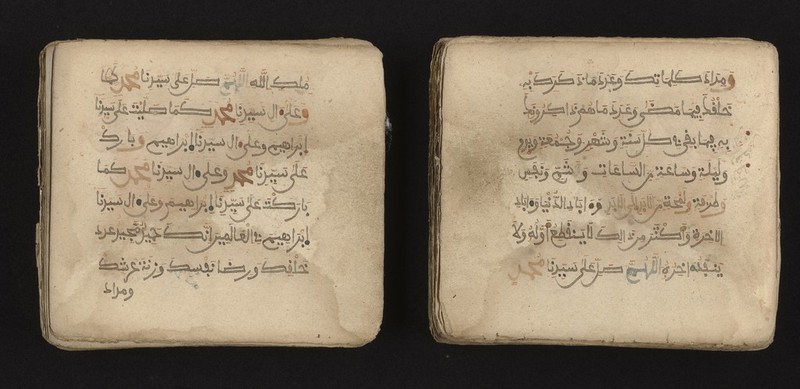 ملك الله اللهم صل على سيدنا محمد
وعلى ءال سيدنا محمد كما صليت على سيدنا
ابراهيم وعلى ءال سيدنا ابراهيم وبارك
على سيدنا محمد وعلى ءال سيدنا محمد كما
باركت على سيدنا ابراهيم وعلى ءال سيدنا
ابراهيم في العالمين انك حميد مجيد عدد
خلقك ورضا نفسك وزنة عرشك
ومداد
ومداد كلماتك وعدد ما ذكرك به
خلقك فيما مضى وعدد ما هم ذاكرونك
به فيما بقي في كل سنة وشهر وجمعة ويوم
وليلة وساعة من الساعات وشم ونفس
وطرفة ولمحة من الابد الى الابد وءاباد الدنيا وءاباد
الاخرة واكثر من ذلك لا ينقطع اوله ولا
ينفد اخره اللهم صل على سيدنا محمد